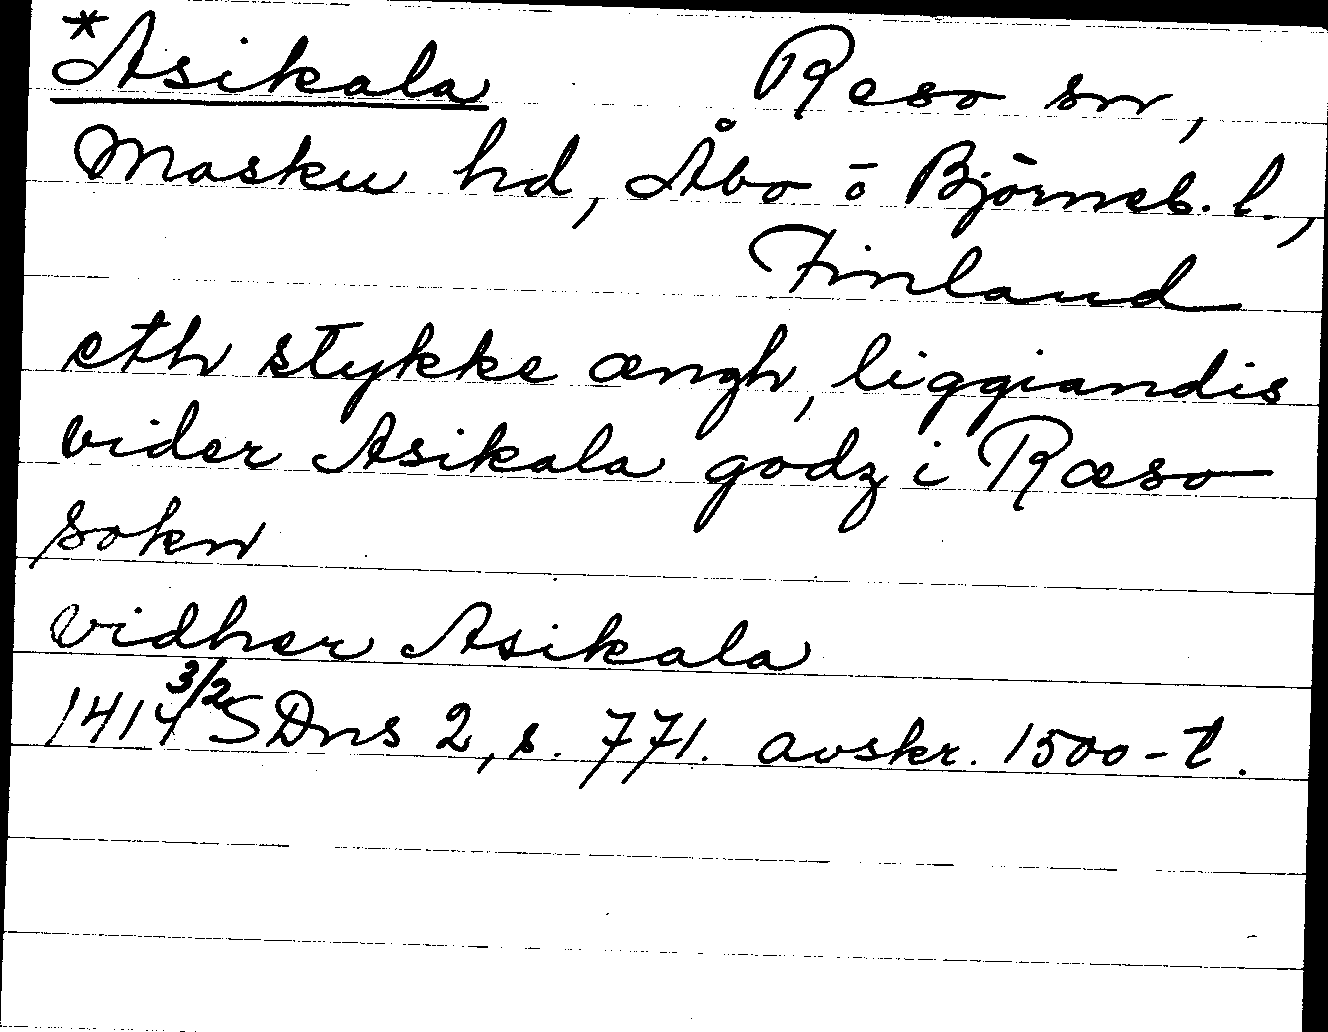 *Asikala Reso sn,
Masku hd, Åbo o Björneb. l.,
Finland
eth stykke ængh, liggiandis
vider Asikala godz i Ræso
sokn
vidher Asikala
1414 3/2 SDns 2, s. 771. avskr. 1500-t.